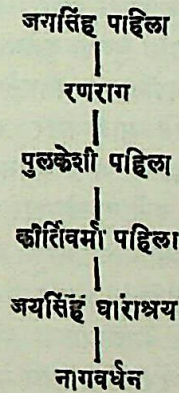 जयसिंह पहिला
रणराग
पुलकेशी पहिला
कीर्तिवर्मा पहिला
जयसिंह धाराश्रय
नागवर्धन